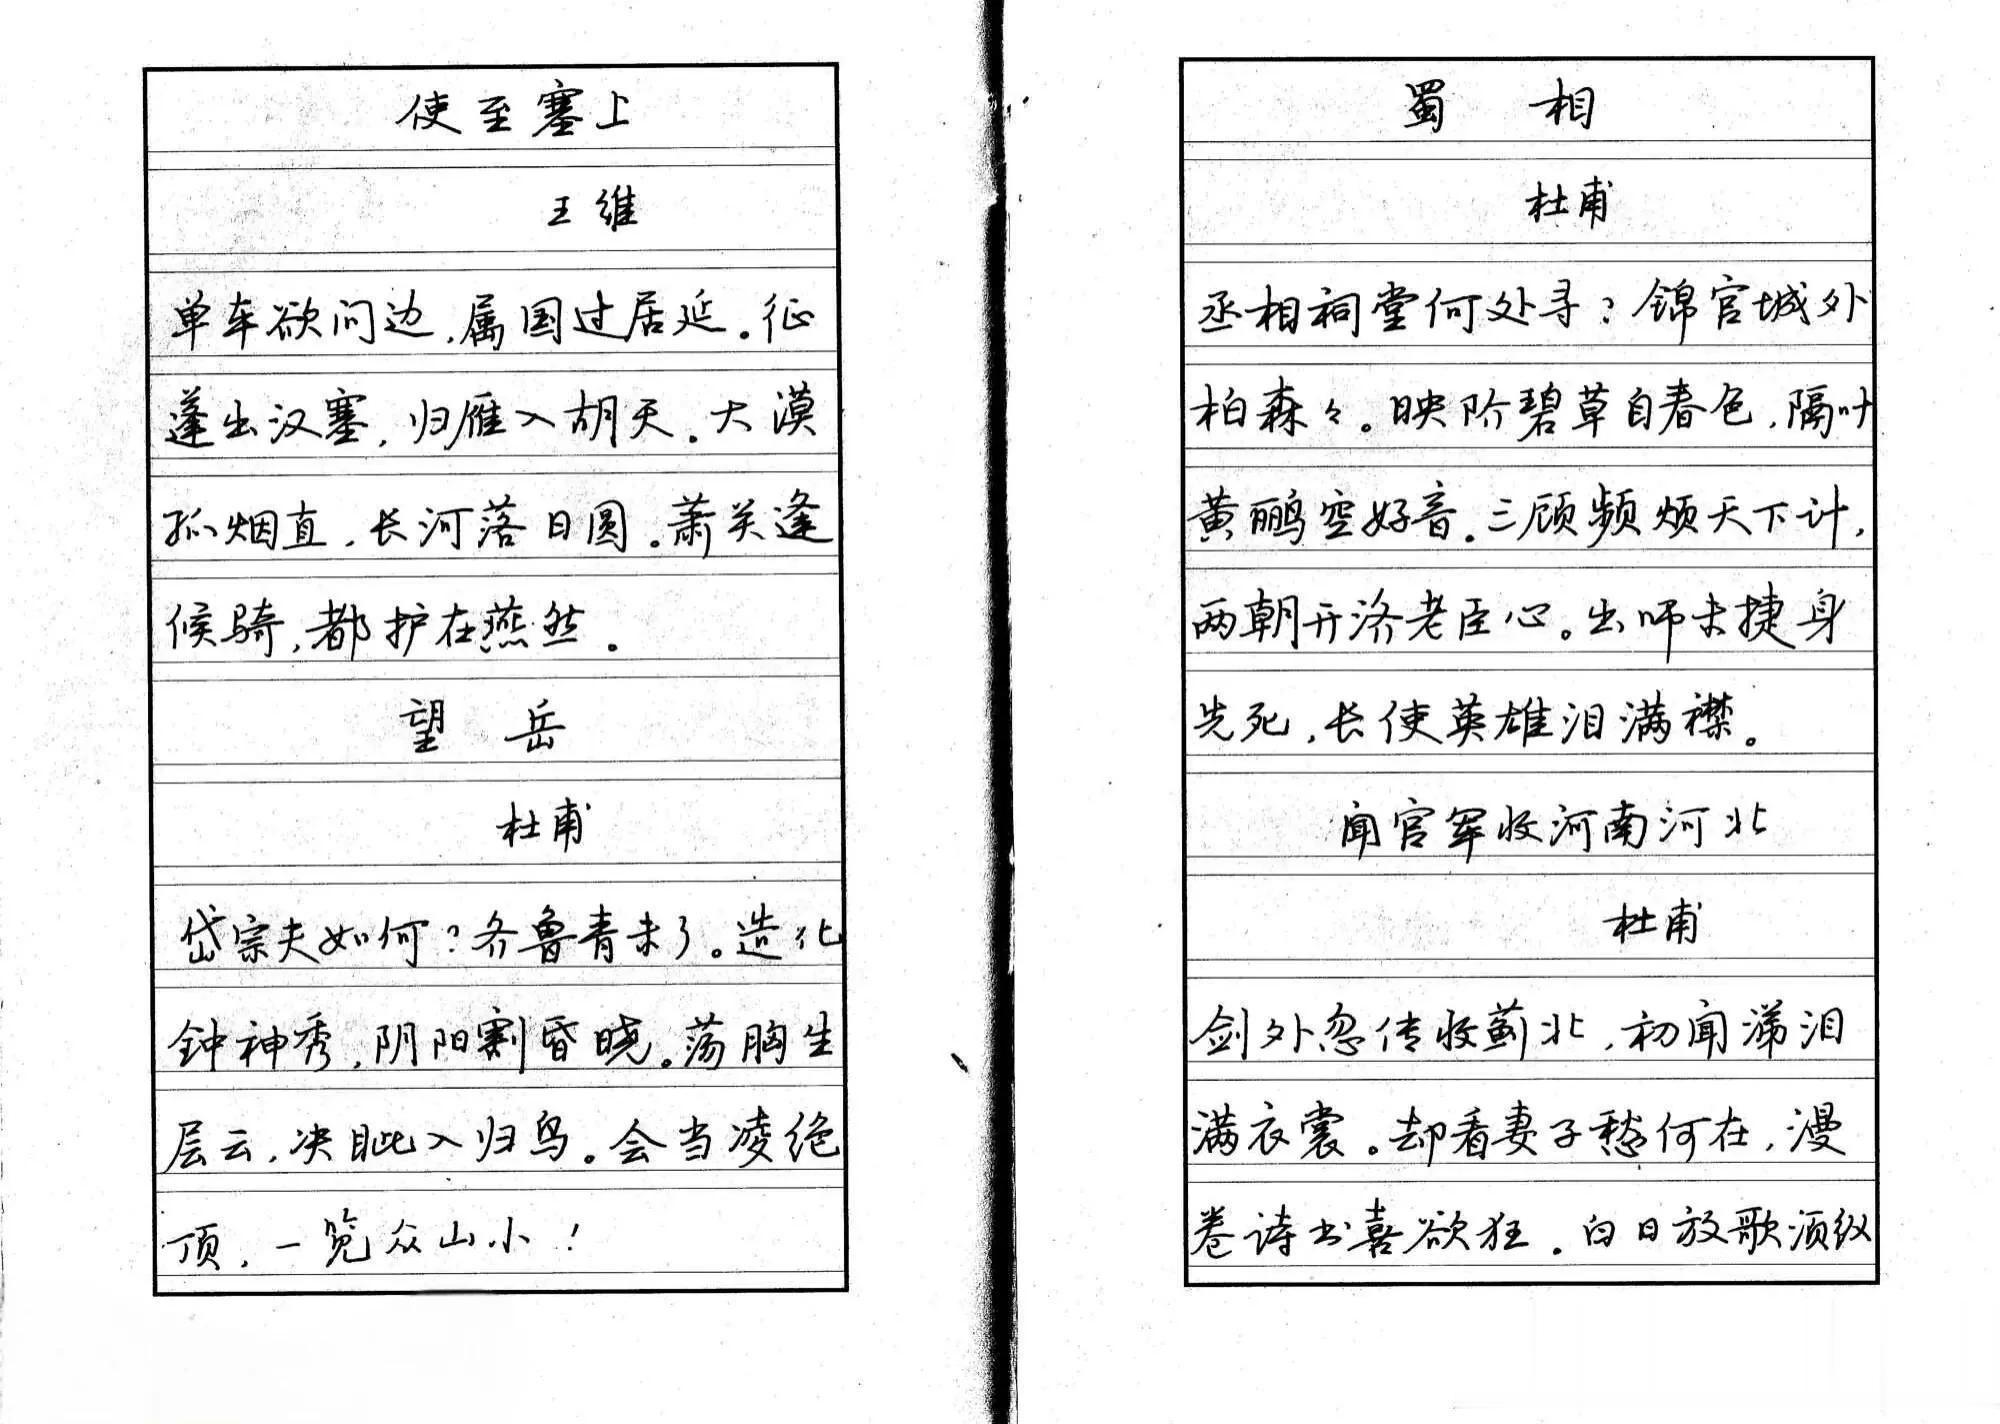 使至塞上
王维
单车欲问边,属国过居延。征
蓬出汉塞,归雁入胡天。大漠
孤烟直,长河落日圆。萧关逢
候骑,都护在燕然。
望岳
杜甫
岱宗夫如何?齐鲁青未了。造化
钟神秀,阴阳割昏晓。荡胸生
层云,决眦入归鸟。会当凌绝
顶,一览众山小!
蜀相
杜甫
丞相祠堂何处寻?锦官城外
柏森々。映阶碧草自春色,隔叶
黄鹂空好音。三顾频烦天下计,
两朝开济老臣心。出师未捷身
先死,长使英雄泪满襟。
闻官军收河南河北
杜甫
剑外忽传收蓟北,初闻涕泪
满衣裳。却看妻子愁何在,漫
卷诗书喜欲狂。白日放歌须纵